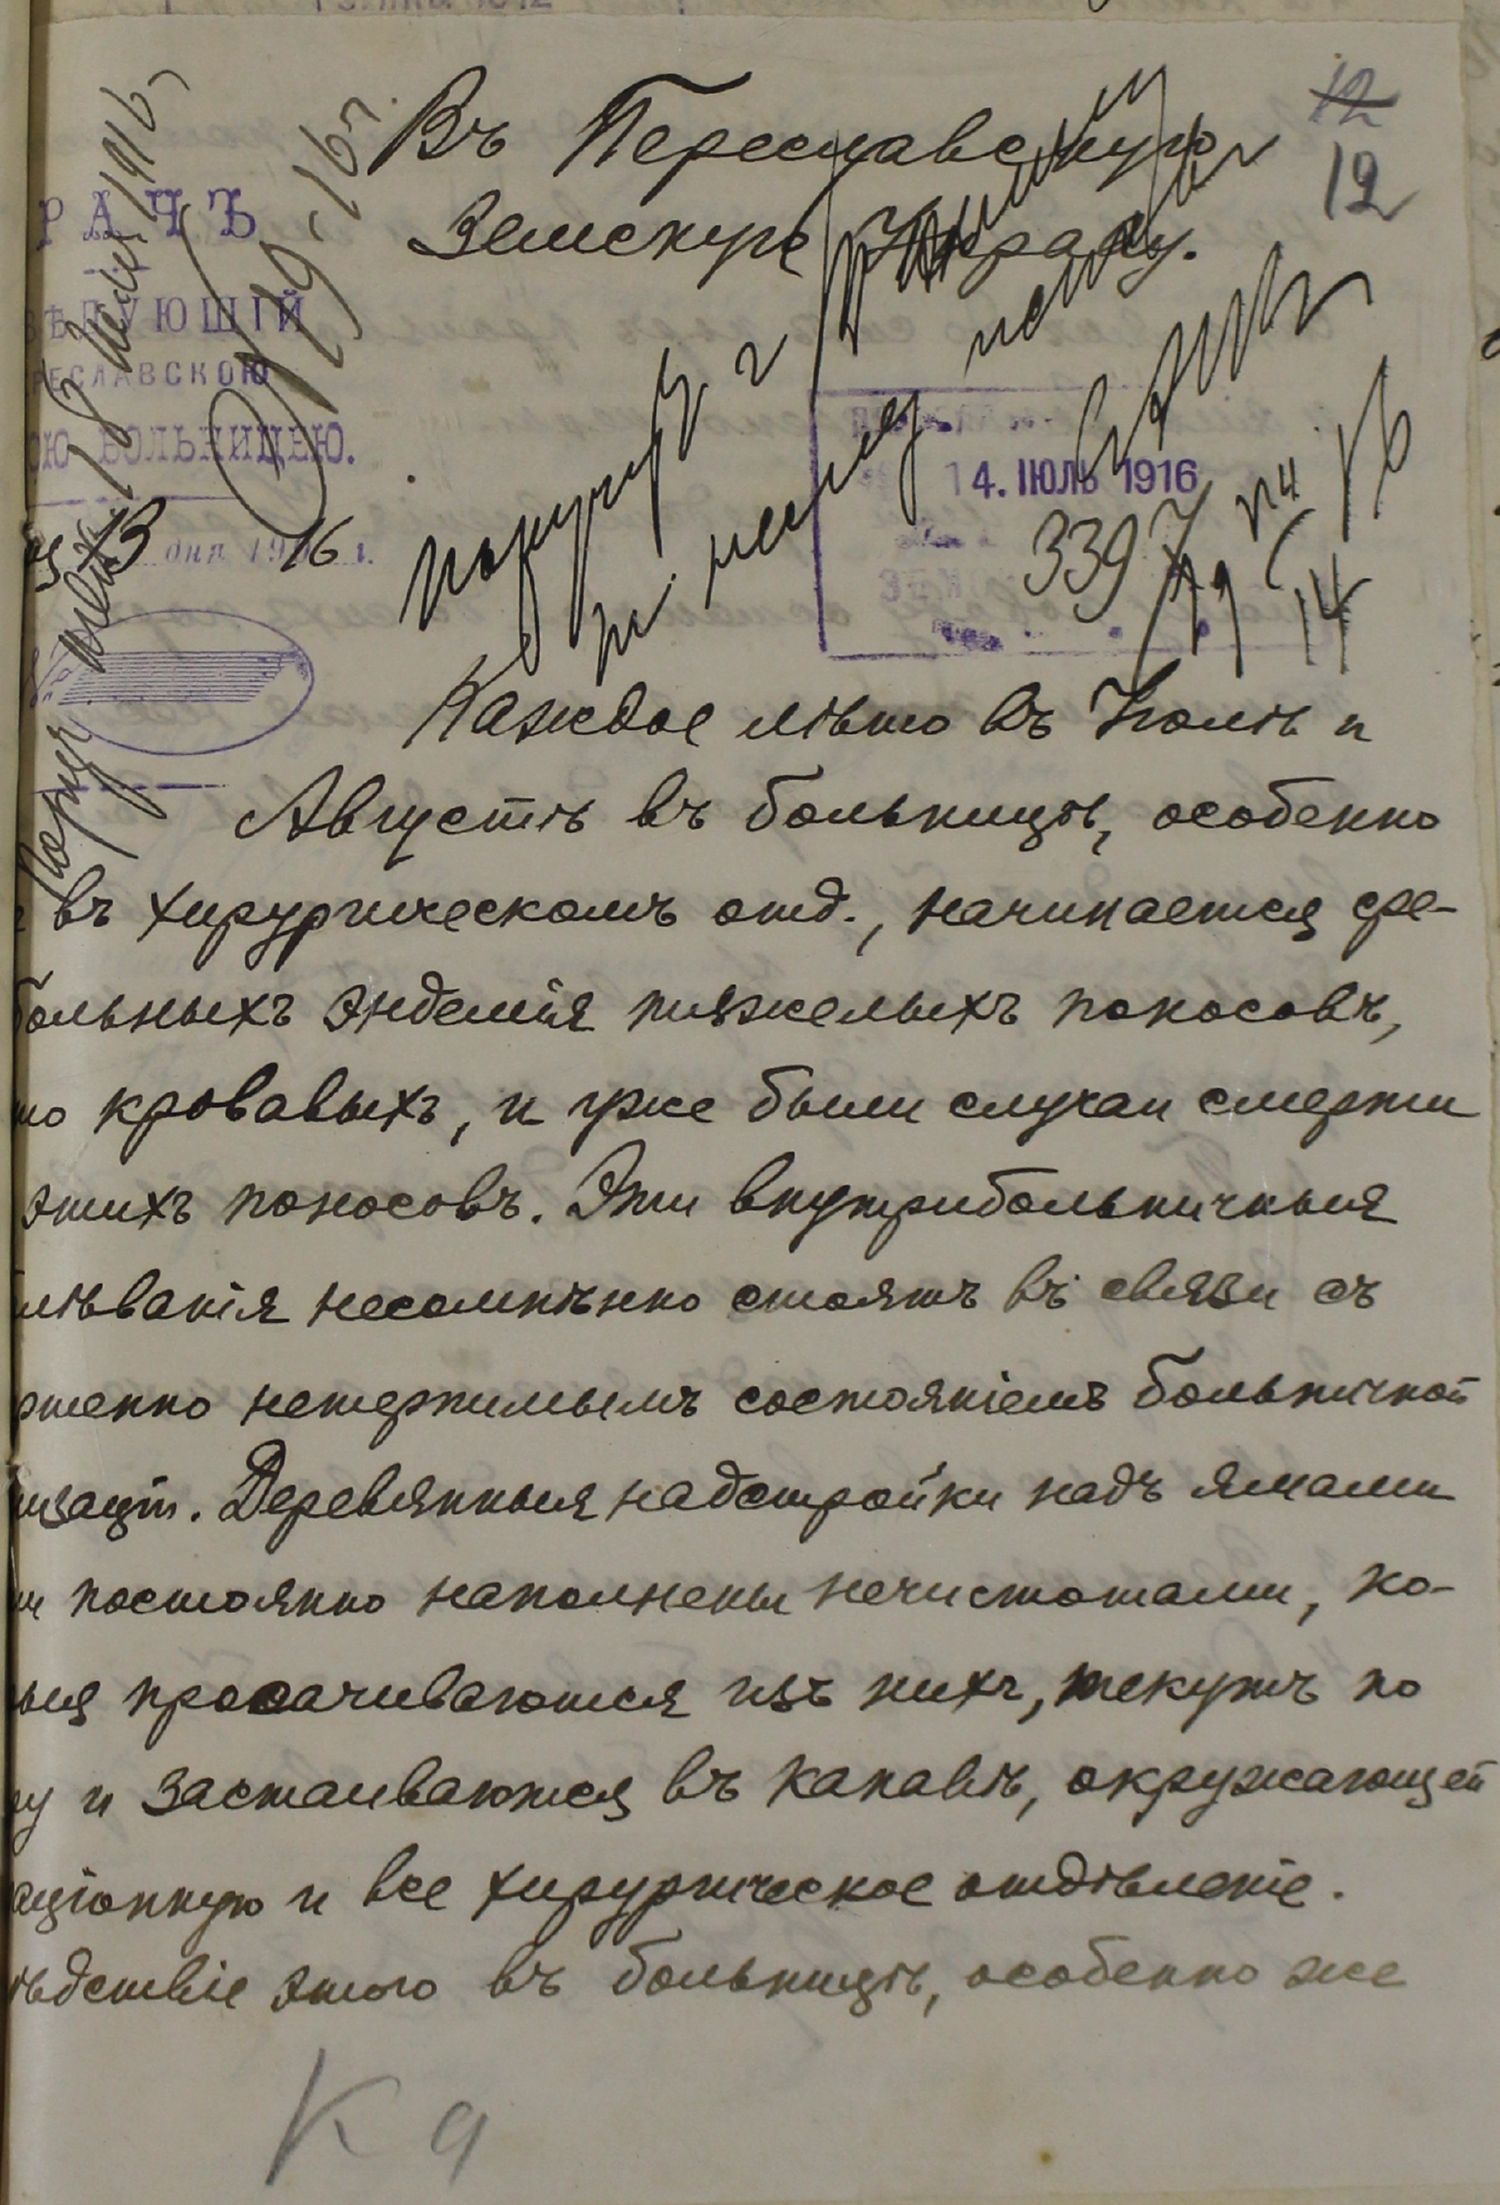 12
12
Въ Переславскую
Земскую Управу.
РАЧЪ
ВѢДУЮЩІЙ
РЕСЛАВСКОЮ
ОЮ БОЛЬНИЦЕЮ.
13 дня 1916 г.
14. ІЮЛЬ 1916
3397
Каждое лѣто въ Іюлѣ и
Августѣ въ больницѣ, особенно
въ хирургическомъ отд., начинается сре-
больныхъ эндемія тяжелыхъ поносовъ,
то кровавыхъ, и уже были случаи смерти
этихъ поносовъ. Эти внутрибольничныя
лѣванія несомнѣнно стоятъ въ связи съ
ршенно нетерпимымъ состояніемъ больничной
изаціи. Деревянныя надстройки надъ ямами
и постоянно наполнены нечистотами, ко-
ыя просачиваются изъ нихъ, текутъ по
у и застаиваются въ канавѣ, окружающей
аціонную и все хирургическое отдѣленіе.
ѣдствіе этого въ больницѣ, особенно же
К 9